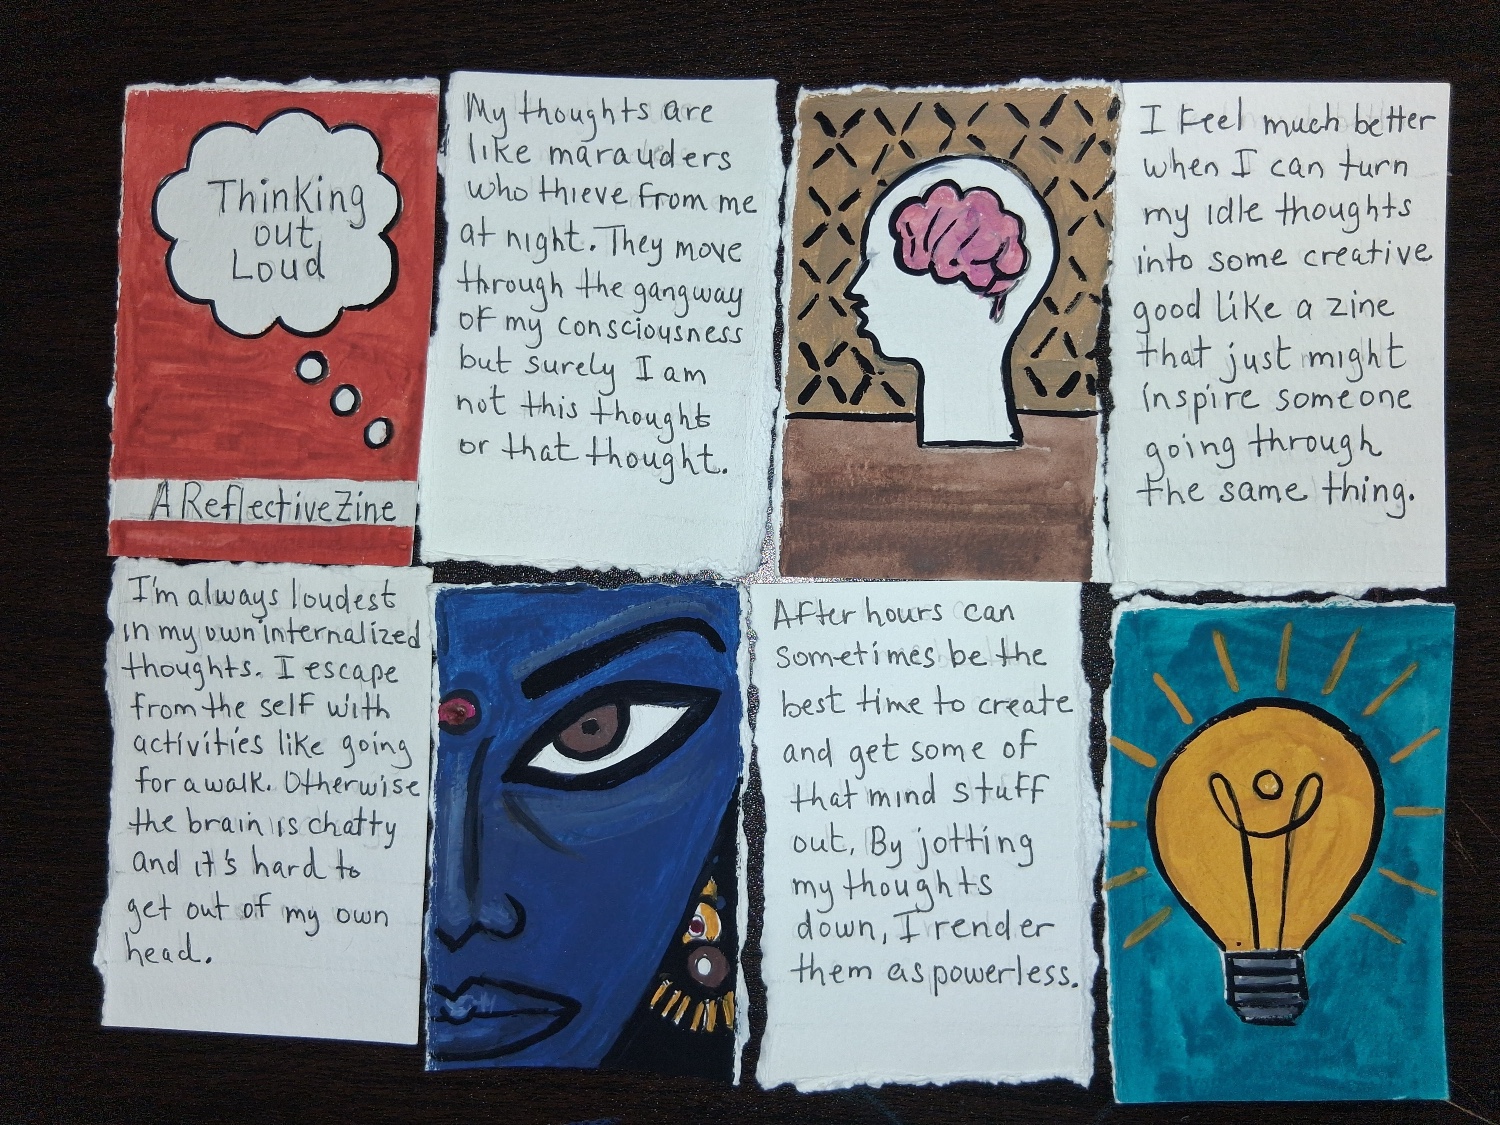 Thinking
out
Loud
A Reflective Zine
My thoughts are
like marauders
who thieve from me
at night. They move
through the gangway
of my consciousness
but surely I am
not this thought
or that thought.
I feel much better
when I can turn
my idle thoughts
into some creative
good like a zine
that just might
inspire someone
going through
the same thing.
I'm always loudest
in my own internalized
thoughts. I escape
from the self with
activities like going
for a walk. Otherwise
the brain is chatty
and it's hard to
get out of my own
head.
After hours can
sometimes be the
best time to create
and get some of
that mind stuff
out. By jotting
my thoughts
down, I render
them as powerless.